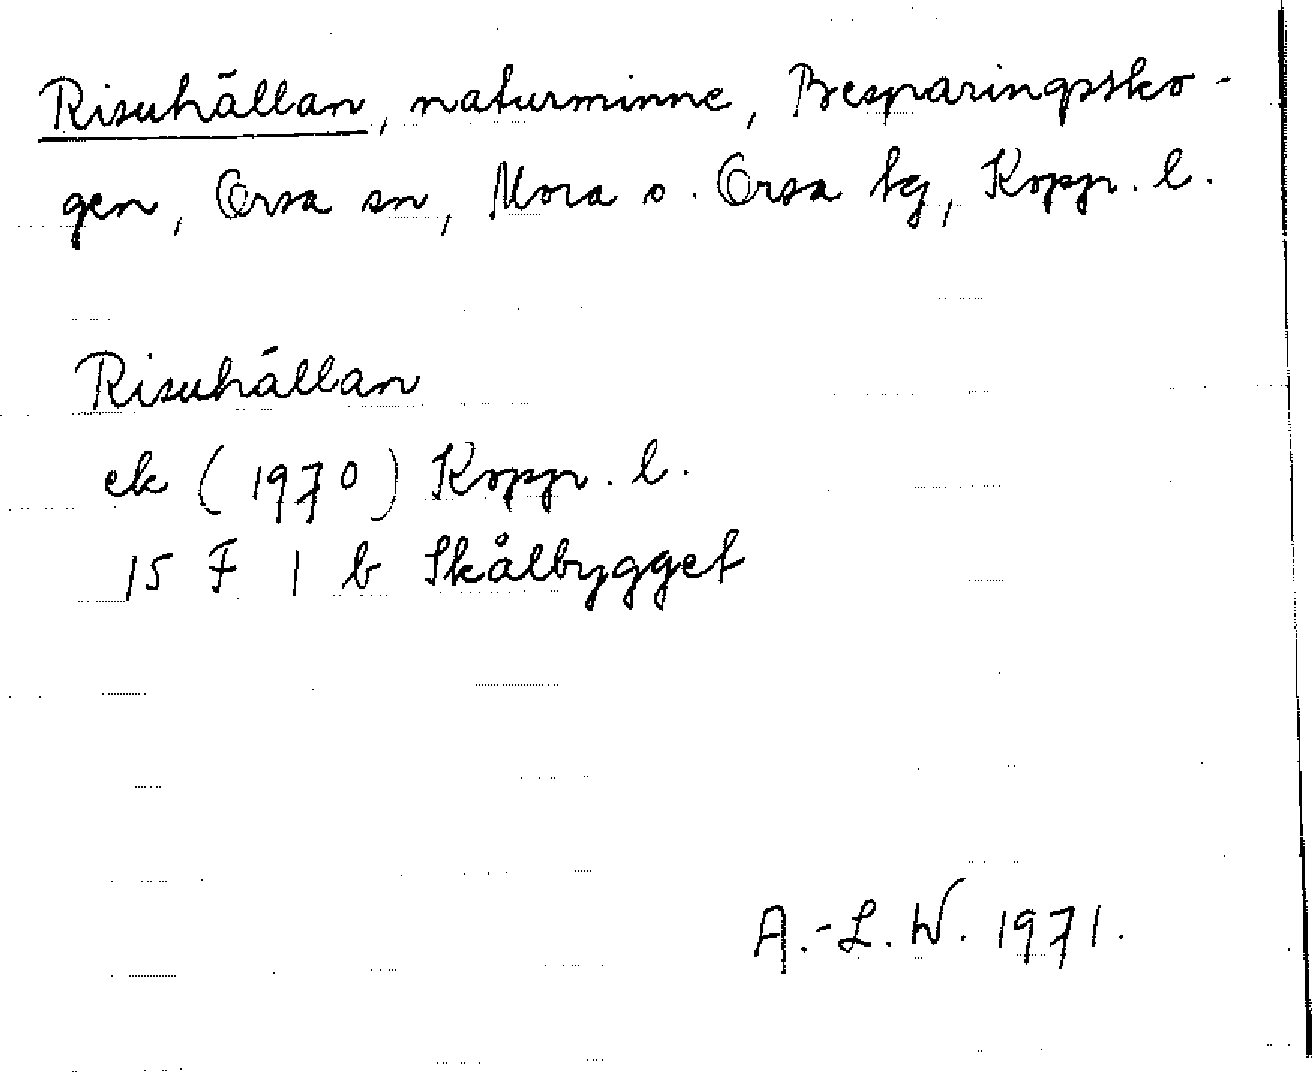 Risuhällan, naturminne, Besparingssko-
gen, Orsa sn, Mora o. Orsa tg, Koppr. l.
Risuhällan
ek (1970) Koppr. l.
15 F 1 b Skålbygget
A.-L. W. 1971.